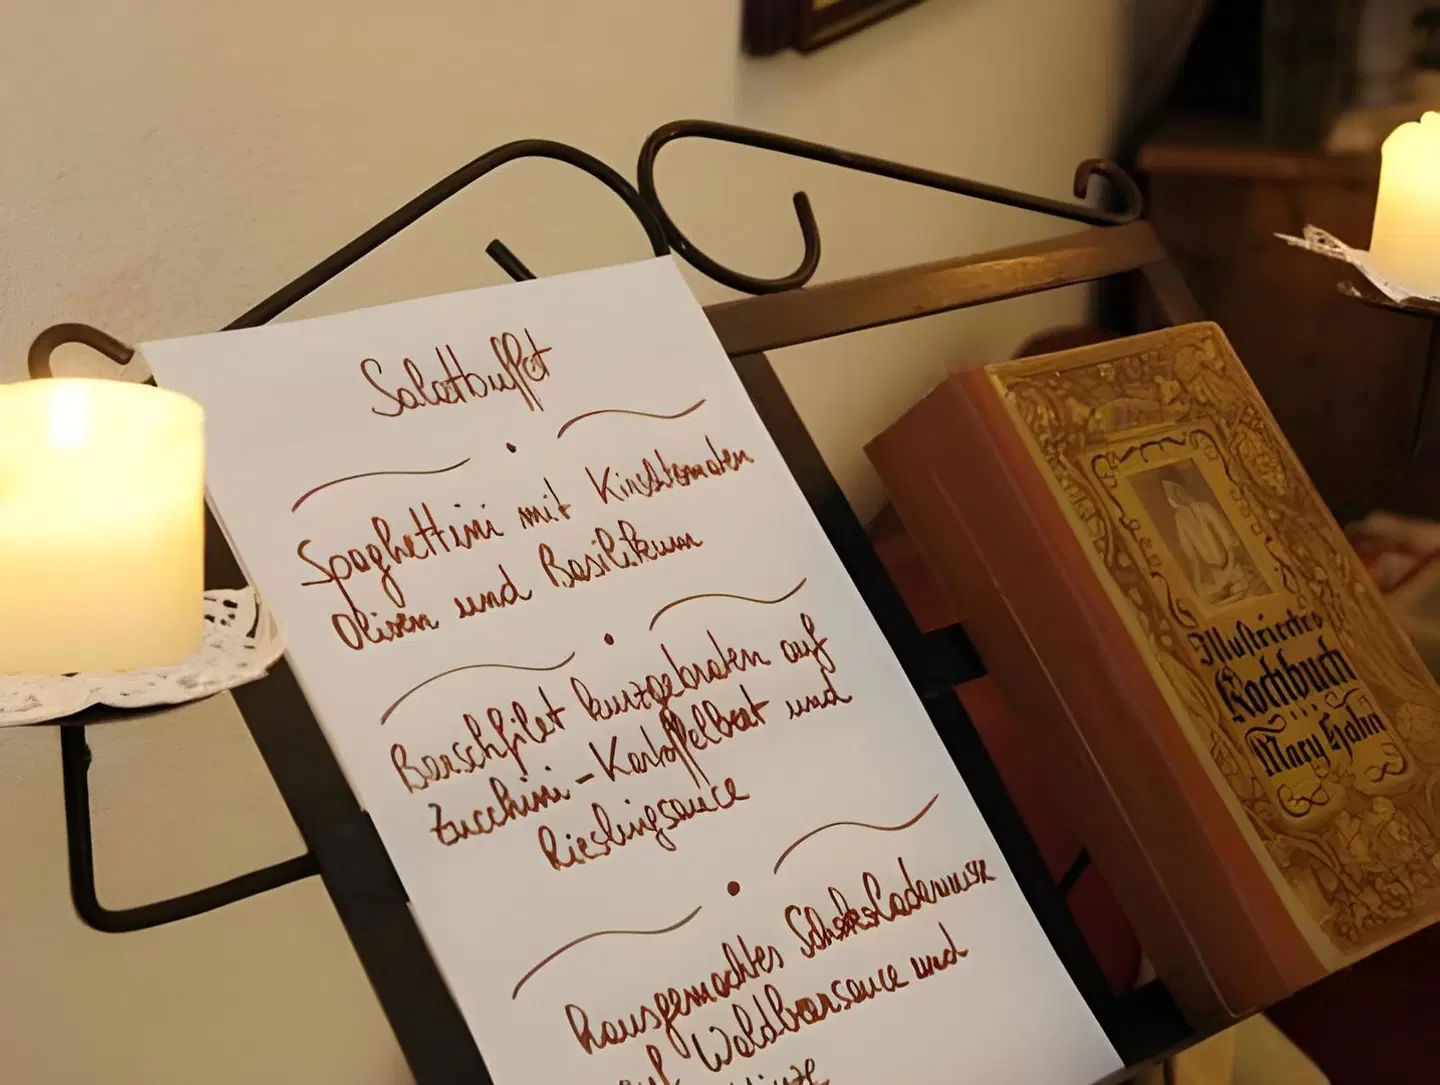 Salatbuffet
Spaghettini mit Kirschtomaten
Oliven und Basilikum
Barschfilet kurzgebraten auf
Zucchini-Kartoffelbeet und
Rieslingsauce
hausgemachtes Schokoladenmousse
auf Waldbeersauce und
Minze
Illustriertes
Kochbuch
Mary Hahn